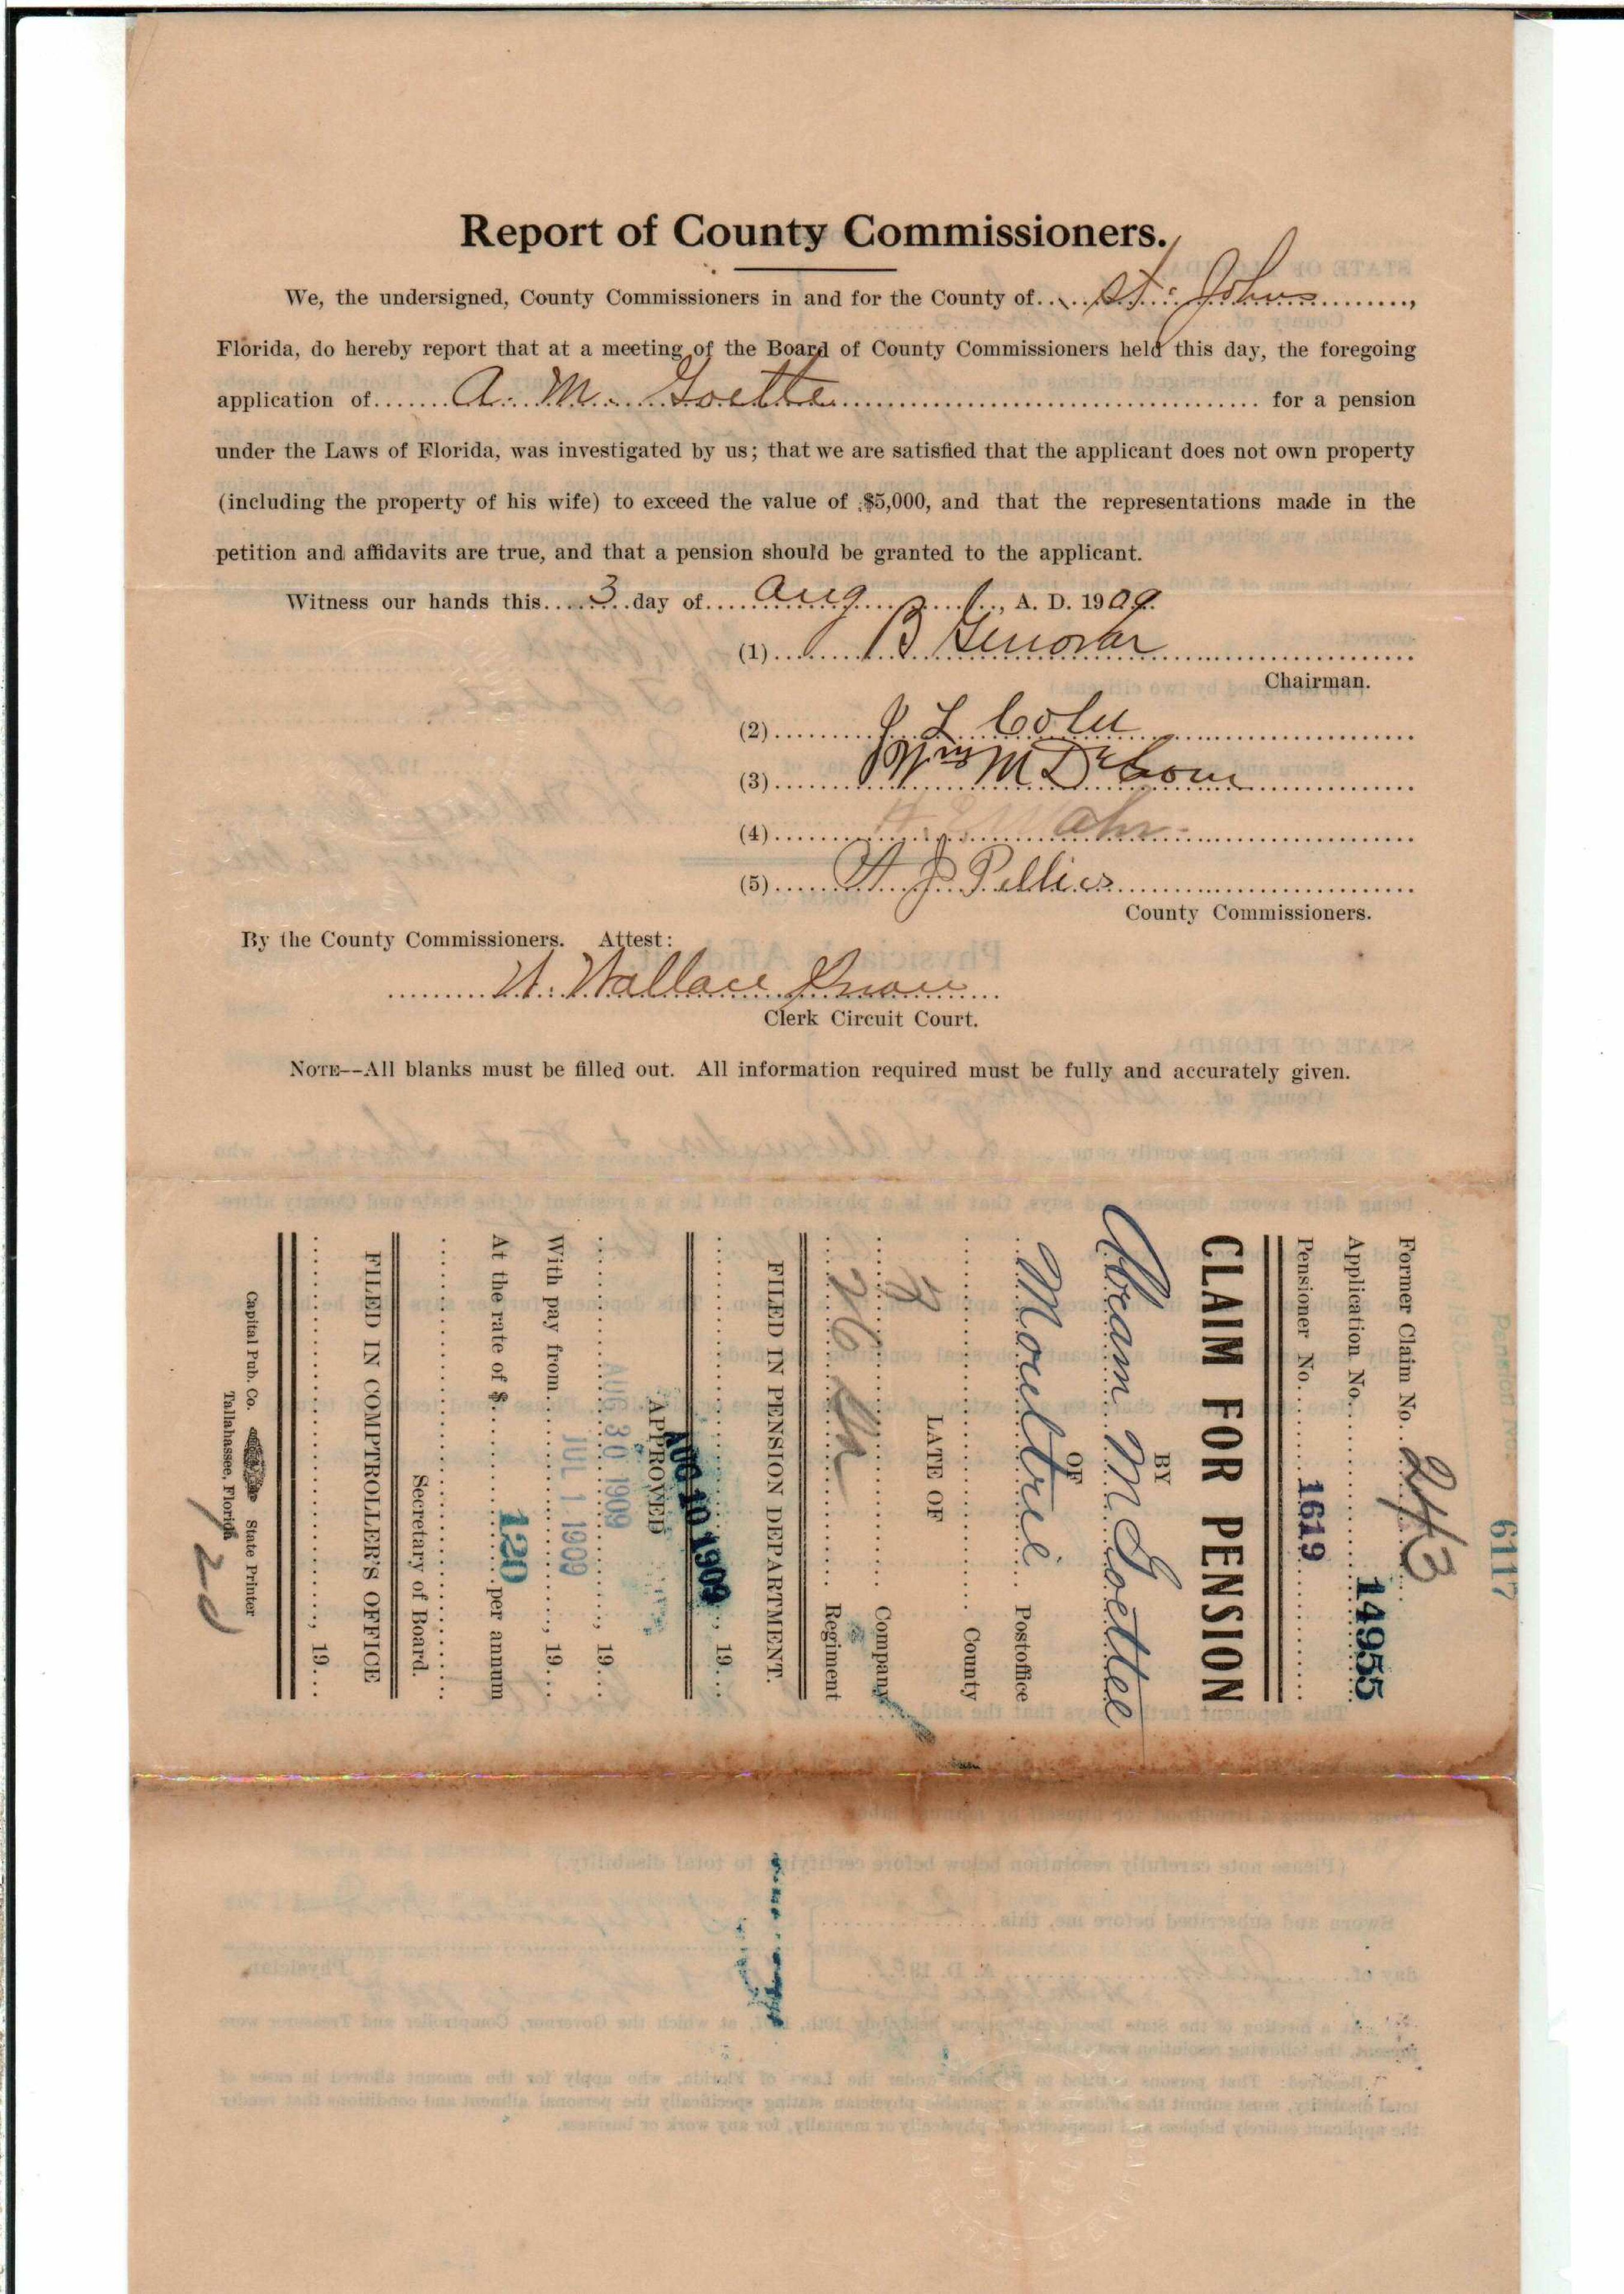 Report of County Commissioners.
We, the undersigned, County Commissioners in and for the County of St. Johns,
Florida, do hereby report that at a meeting of the Board of County Commissioners held this day, the foregoing
application of A. M. Goette for a pension
under the Laws of Florida, was investigated by us; that we are satisfied that the applicant does not own property
(including the property of his wife) to exceed the value of $5,000, and that the representations made in the
petition and affidavits are true, and that a pension should be granted to the applicant.
Witness our hands this 3 day of Aug, A. D. 1909.
(1) B Genovar
Chairman.
(2) J L Colee
(3) Wm M
(4)
(5) A J Pellicer
County Commissioners.
By the County Commissioners. Attest:
Wallace Snow
Clerk Circuit Court.
NOTE--All blanks must be filled out. All information required must be fully and accurately given.
6117
Former Claim No. 243
Application No. 14955
Pensioner No. 1619
CLAIM FOR PENSION
BY
Abram M Goettee
OF
Moultrie Postoffice
County
LATE OF
Company
26 Ga Regiment
FILED IN PENSION DEPARTMENT.
AUG 10 1909, 19
APPROVED
AUG 30 1909, 19
With pay from JUL 1 1909, 19
At the rate of $ 120 per annum
Secretary of Board.
FILED IN COMPTROLLER'S OFFICE
, 19
Capital Pub. Co. State Printer
Tallahassee, Florida